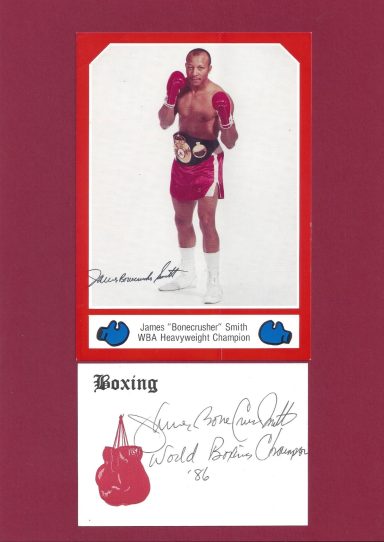 James Bonecrusher Smith
James "Bonecrusher" Smith
WBA Heavyweight Champion
Boxing
James Bone Crusher Smith
World Boxing Champion
'86